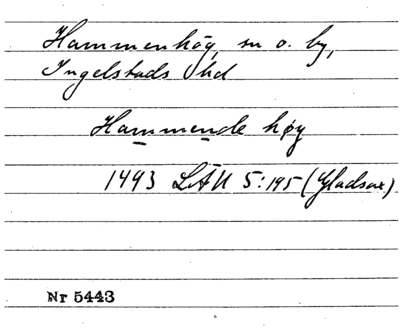 Hammenhög, sn o. by,
Ingelstads hd
Hammende høy
1493 LÄU 5:195 (Gladsax)
Nr 5443